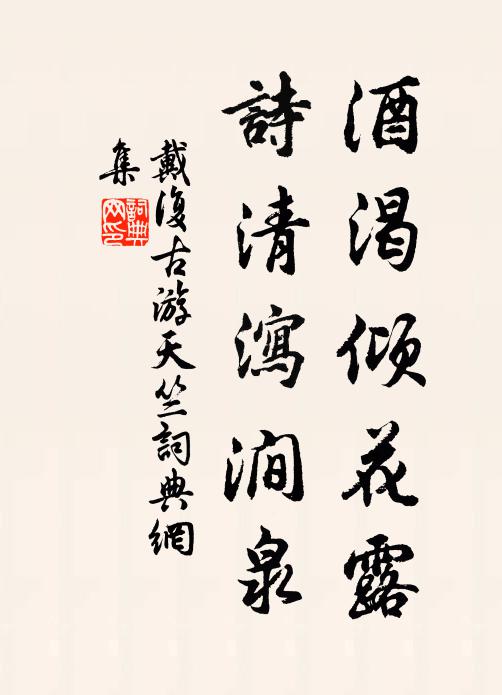 酒渴倾花露
詩清瀉澗泉
戴復古游天竺詞典網
集
詞典
网印